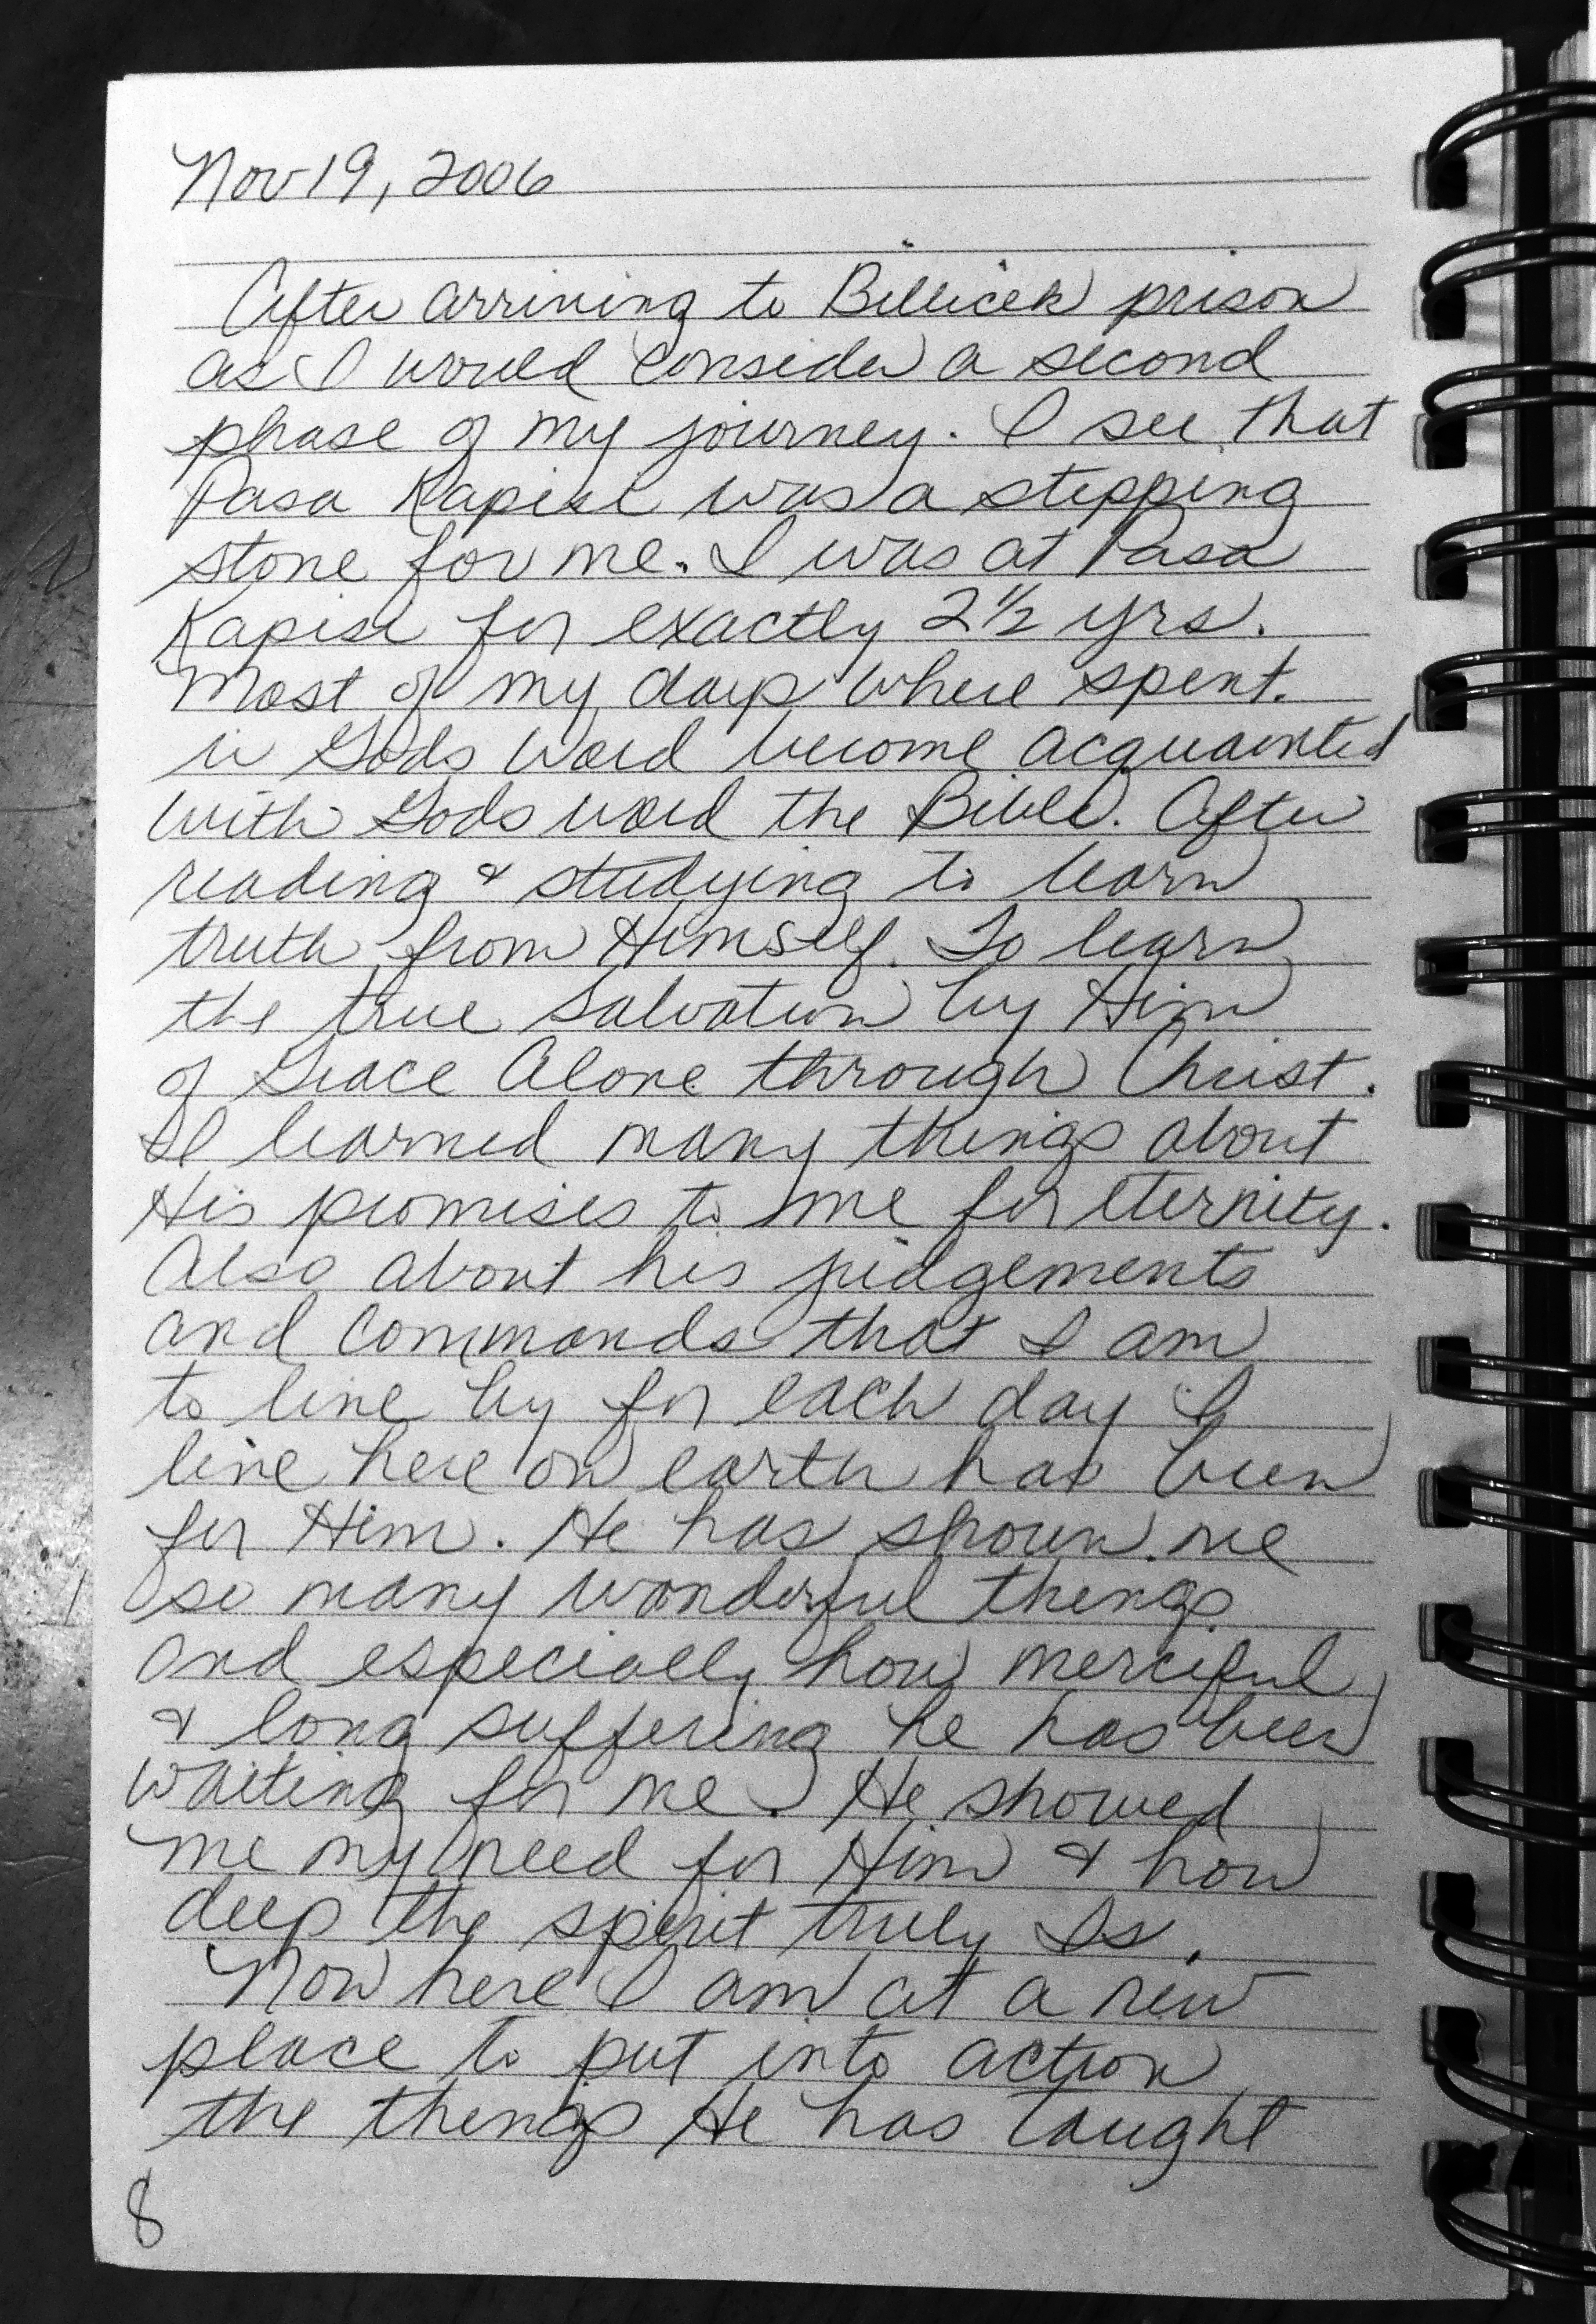 Nov 19, 2006
After arriving to Billicek prison
as I would consider a second
phase of my journey. I see that
Pasa Kapisi was a stepping
stone for me. I was at Pasa
Kapisi for exactly 2 1/2 yrs.
Most of my days where spent.
in Gods Word become acquainted
with Gods word the Bible. After
reading & studying to learn
truth from Himself. To learn
the true Salvation by Him
of Grace Alone through Christ.
I learned many things about
His promises to me for eternity.
Also about his judgements
and commands that I am
to live by for each day I
live here on earth has been
for Him. He has shown me
so many wonderful things
and especially how merciful
& long suffering he has been
waiting for me. He showed
me my need for Him & how
deep the spirit truly Is.
Now here I am at a new
place to put into action
the things He has taught
8